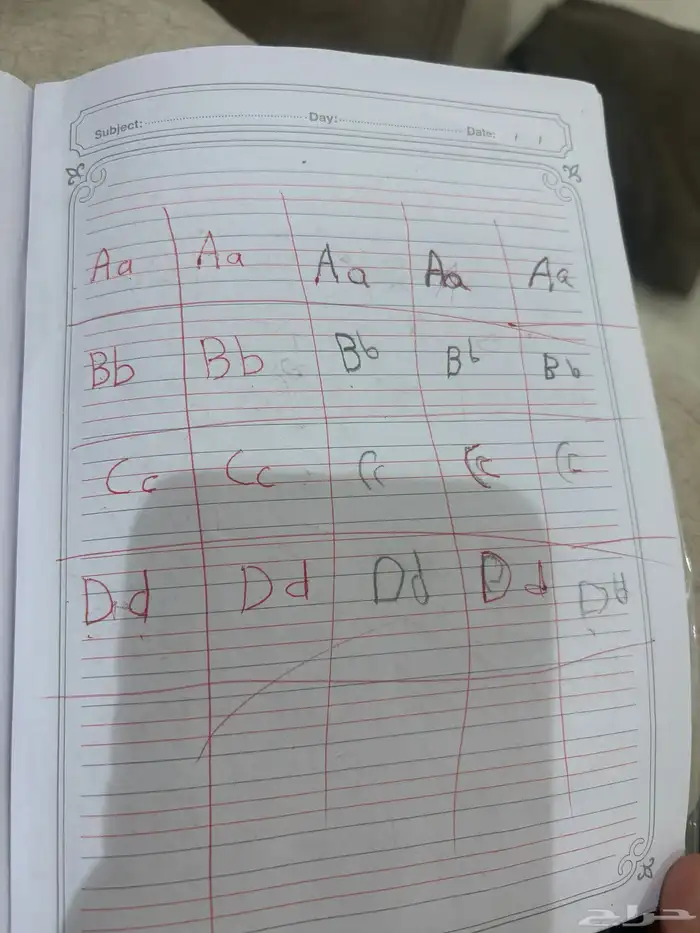 Subject: Day: Date: / /
Aa Aa Aa Aa Aa
Bb Bb Bb Bb Bb
Cc Cc Cc Cc Cc
Dd Dd Dd Dd Dd
حراج